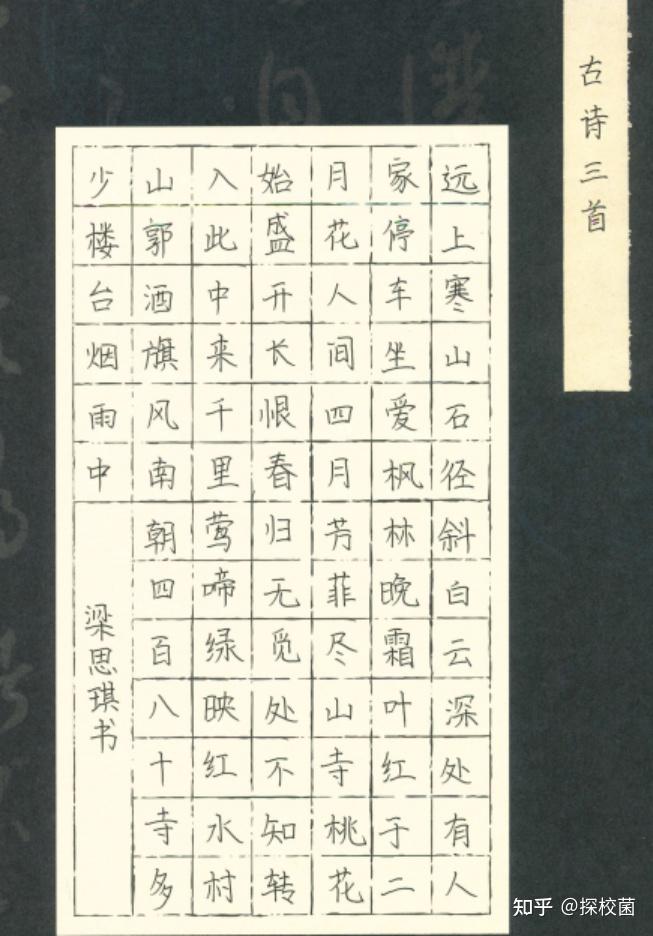 古诗三首
远上寒山石径斜白云深处有人
家停车坐爱枫林晚霜叶红于二
月花人间四月芳菲尽山寺桃花
始盛开长恨春归无觅处不知转
入此中来千里莺啼绿映红水村
山郭酒旗风南朝四百八十寺多
少楼台烟雨中
梁思琪书
知乎 @探校菌